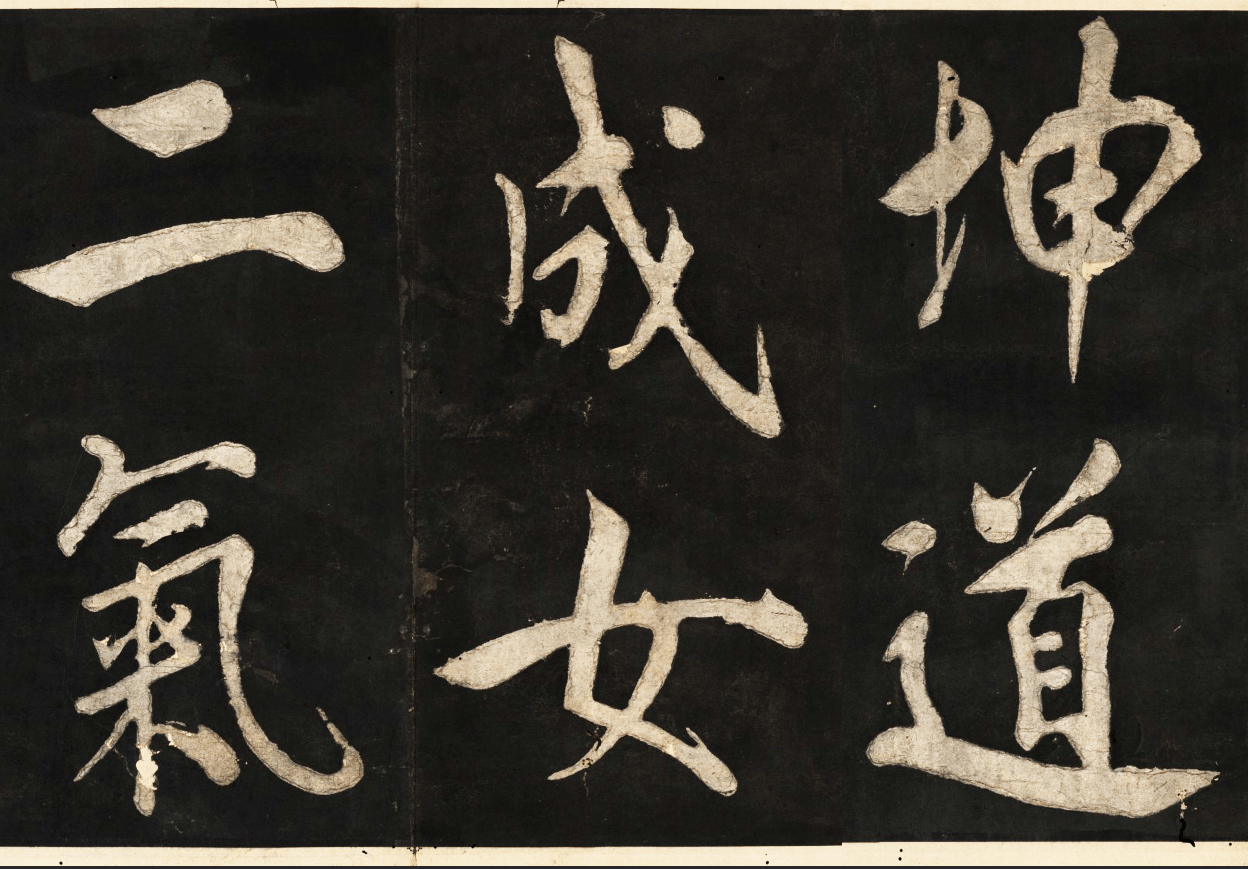 坤道
成女
二氣